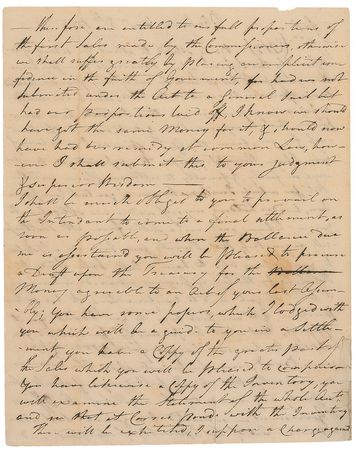 therefore are entitled to our full proportions of
the first Sales made by the Commissioners, otherwise
we shall suffer greatly by placing an implicit con-
fidence in the faith of Government, for had we not
submitted under the Act to a General Sail but
had our Proportions laid off, I know we should
have got the same Money for it, & should now
have had our remedy at common Law, how-
ever I shall submit this to your Judgment
& superior Wisdom
I shall be much obliged to you to prevail on
the Intendant to come to a final settlement, as
soon as possible, and when the Ballance due
me is ascertained you will be pleased to procure
a Draft upon the Treasury for the
Money agreeable to an Act of your last Assem-
bly; You have some papers, which I lodged with
you which will be a guide to you in a Settle-
ment you have a Copy of the greatest part of
the Sales which you will be pleased to compare
You have likewise a Copy of the Inventory, you
will examine the Statement of the whole Acts
and see that it Corresponds with the Inventory
There will be exhibited, I suppose a Charge against